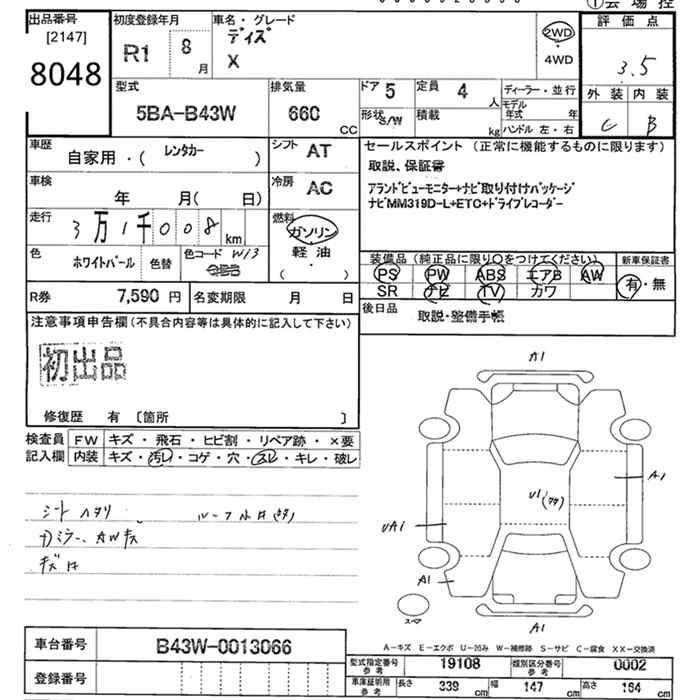 ①会場控
出品番号
[2147]
8048
初度登録年月
R1 8 月
車名・グレード
デイズ
X
2WD
4WD
評価点
3.5
外装 内装
C B
型式
5BA-B43W
排気量
660 cc
ドア 5
形状 S/W
定員 4 人
積載 kg
ディーラー・並行
モデル年式 年
ハンドル 左・右
車歴
自家用・( レンタカー )
シフト AT
車検
年 月( 日)
冷房 AC
走行
3万1千008 km
燃料
ガソリン
軽油
( ・ )
色
ホワイトパール
色替
色コード W13
R券 7,590 円
名変期限 月 日
セールスポイント (正常に機能するものに限ります)
取説、保証書
アランドビューモニター+ナビ取り付けパッケージ
ナビMM319D-L+ETC+ドライブレコーダー
装備品 (純正品に限り○をつけてください)
PS PW ABS エアB AW
SR ナビ TV カワ
新車保証書
有・無
後日品 取説・整備手帳
注意事項申告欄(不具合内容等は具体的に記入して下さい)
初出品
修復歴 有 [箇所 ]
検査員記入欄
FW キズ・飛石・ヒビ割・リペア跡・×要
内装 キズ・汚レ・コゲ・穴・スレ・キレ・破レ
シートヘタリ
A1
A1
U1
UA1
A1
A1
スマ
A-キズ E-エクボ U-凹み W-補修跡 S-サビ C-腐食 XX-交換済
車台番号 B43W-0013066
登録番号
型式指定番号 参考 19108
類別区分番号 参考 0002
車庫証明用 参考
長さ 339 cm
幅 147 cm
高さ 164 cm